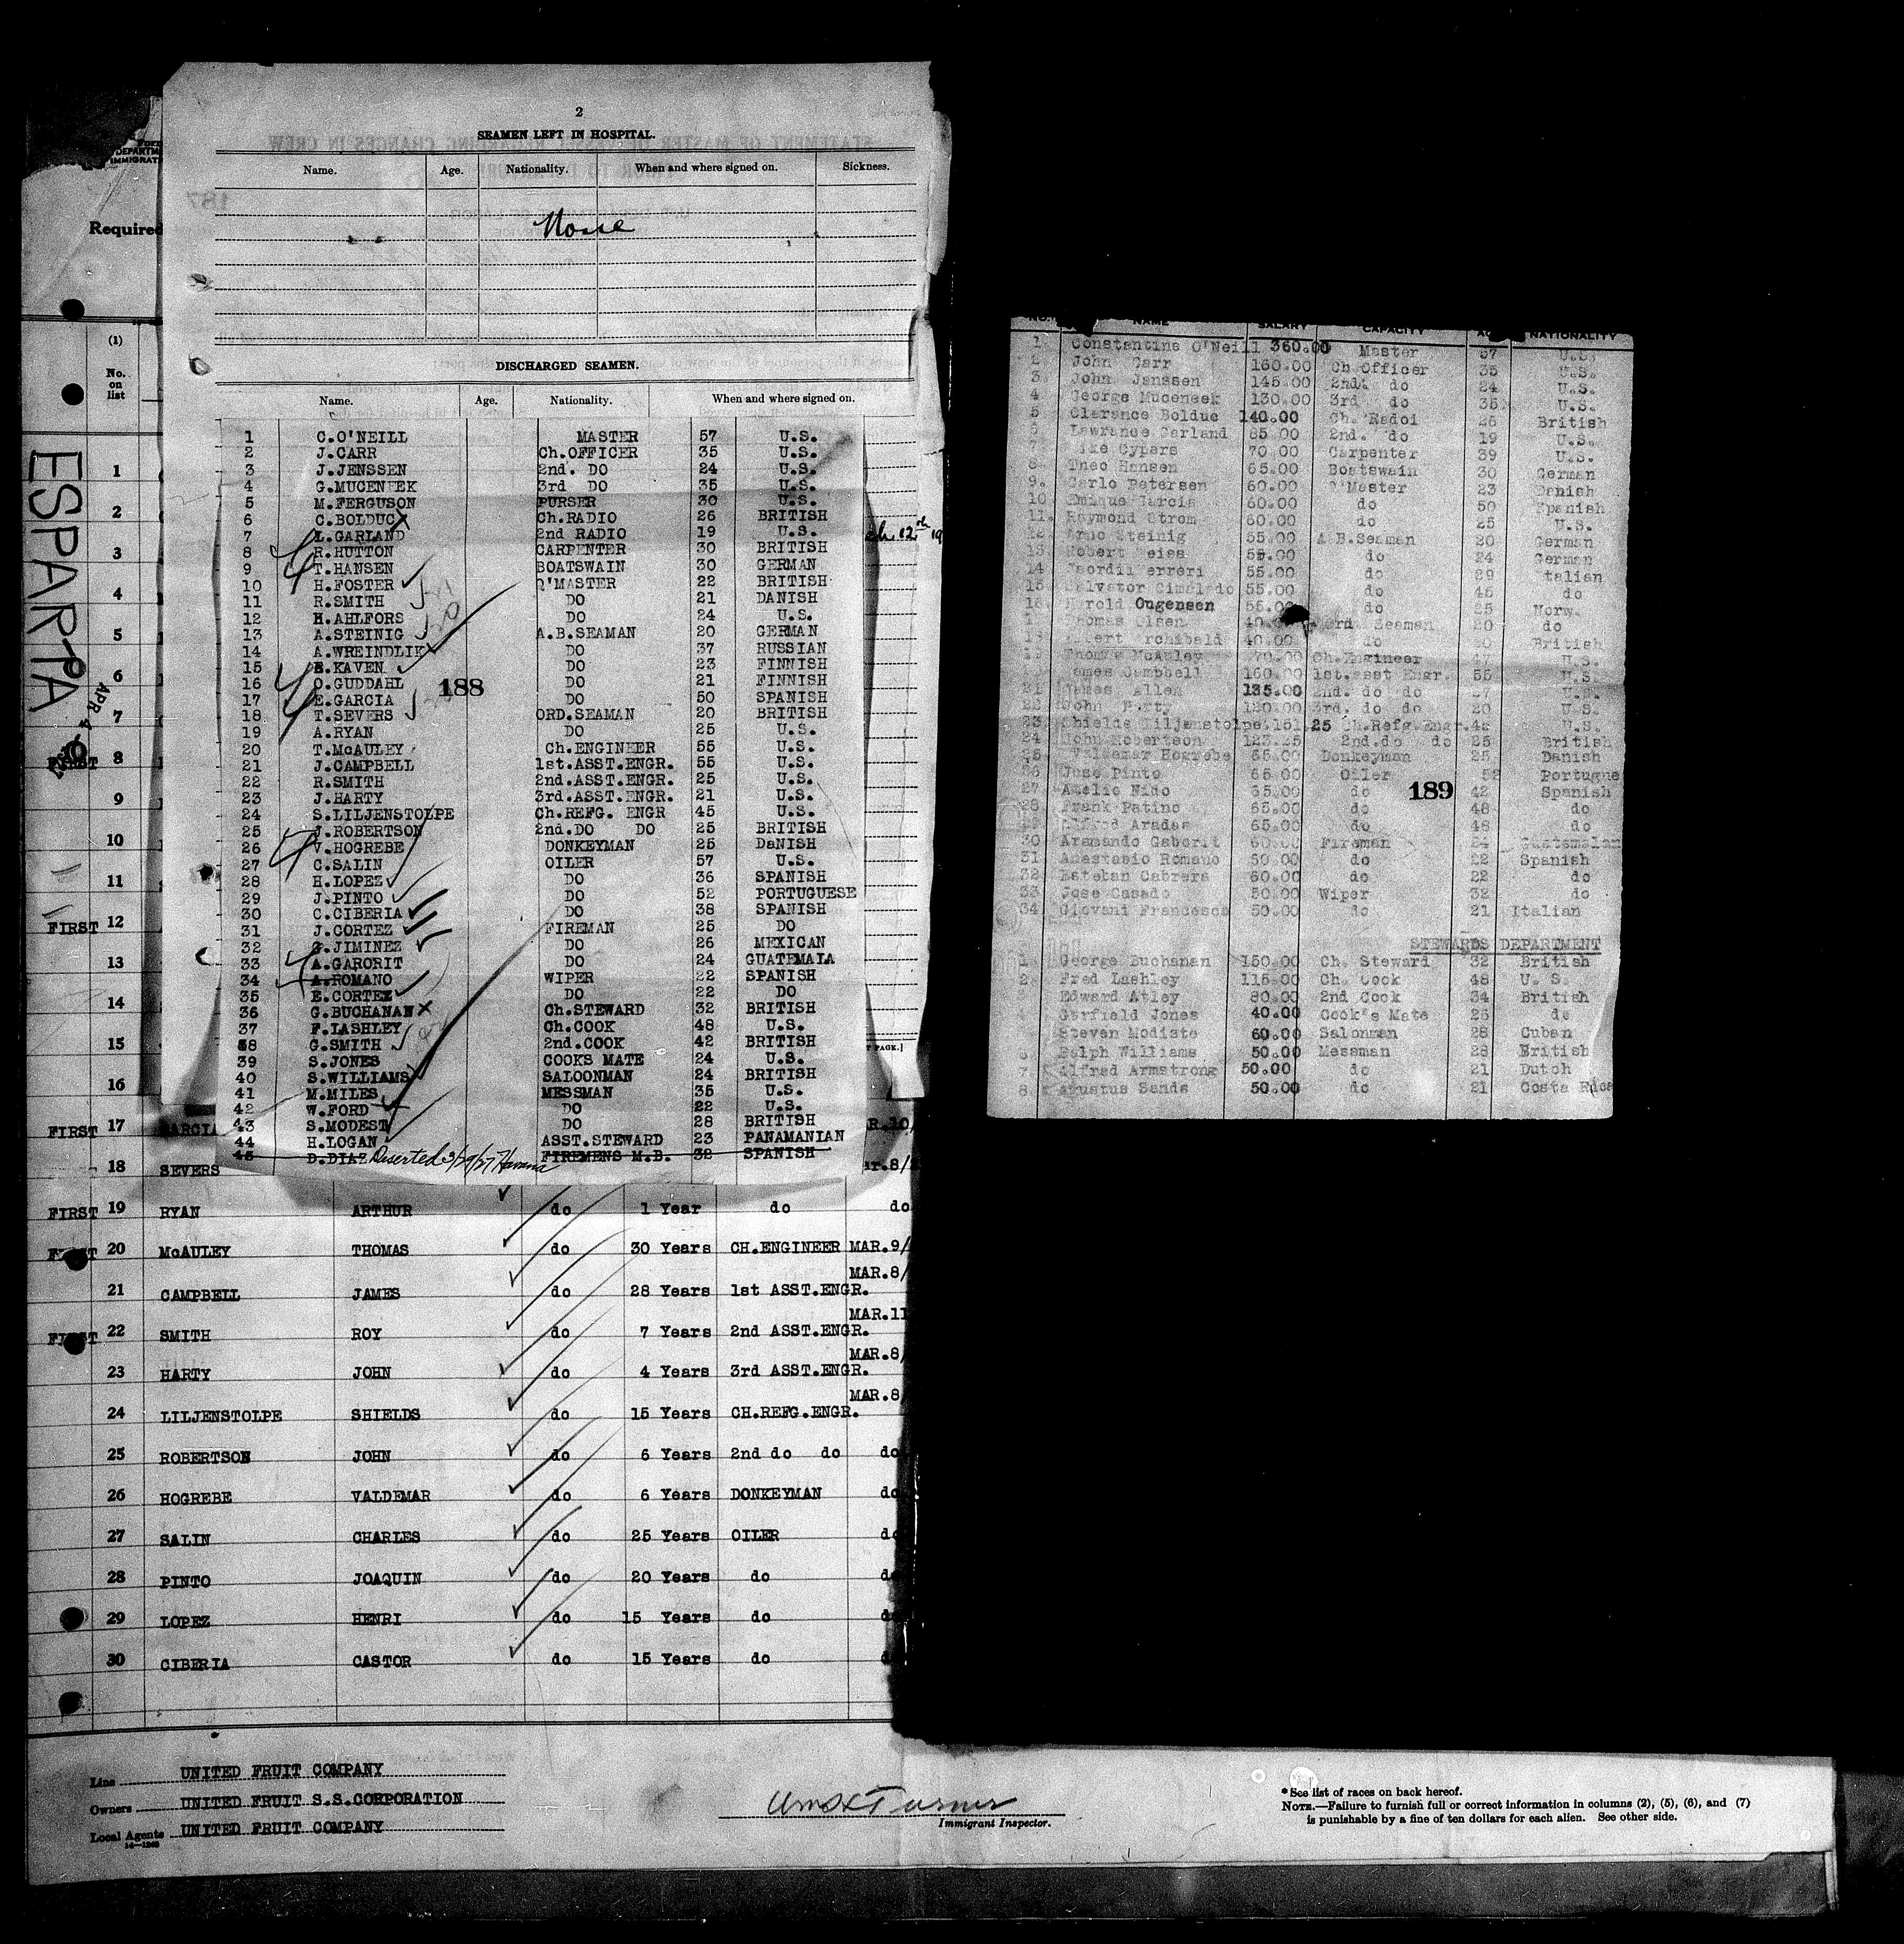 2
SEAMEN LEFT IN HOSPITAL.
Name. Age. Nationality. When and where signed on. Sickness.
None
DISCHARGED SEAMEN.
Name. Age. Nationality. When and where signed on.
1 C.O'NEILL MASTER 57 U.S.
2 J.CARR Ch.OFFICER 35 U.S.
3 J.JENSSEN 2nd. DO 24 U.S.
4 G.MUCENEEK 3rd DO 35 U.S.
5 M.FERGUSON PURSER 30 U.S.
6 C.BOLDUC Ch.RADIO 26 BRITISH
7 L.GARLAND 2nd RADIO 19 U.S.
8 R.HUTTON CARPENTER 30 BRITISH
9 T.HANSEN BOATSWAIN 30 GERMAN
10 H.FOSTER Q'MASTER 22 BRITISH
11 R.SMITH DO 21 DANISH
12 H.AHLFORS DO 24 U.S.
13 A.STEINIG A.B.SEAMAN 20 GERMAN
14 A.WREINDLIK DO 37 RUSSIAN
15 E.KAVEN DO 23 FINNISH
16 O.GUDDAHL DO 21 FINNISH
17 E.GARCIA DO 50 SPANISH
188
18 T.SEVERS ORD.SEAMAN 20 BRITISH
19 A.RYAN DO 25 U.S.
20 T.McAULEY Ch.ENGINEER 55 U.S.
21 J.CAMPBELL 1st.ASST.ENGR. 55 U.S.
22 R.SMITH 2nd.ASST.ENGR. 25 U.S.
23 J.HARTY 3rd.ASST.ENGR. 21 U.S.
24 S.LILJENSTOLPE Ch.REFG. ENGR 45 U.S.
25 J.ROBERTSON 2nd.DO DO 25 BRITISH
26 V.HOGREBE DONKEYMAN 25 DaNISH
27 C.SALIN OILER 57 U.S.
28 H.LOPEZ DO 36 SPANISH
29 J.PINTO DO 52 PORTUGUESE
30 C.CIBERIA DO 38 SPANISH
31 J.CORTEZ FIREMAN 25 DO
32 G.JIMINEZ DO 26 MEXICAN
33 A.GARORIT DO 24 GUATEMALA
34 A.ROMANO WIPER 22 SPANISH
35 E.CORTEZ DO 22 DO
36 G.BUCHANAN Ch.STEWARD 32 BRITISH
37 F.LASHLEY Ch.COOK 48 U.S.
38 G.SMITH 2nd.COOK 42 BRITISH
39 S.JONES COOKS MATE 24 U.S.
40 S.WILLIAMS SALOONMAN 24 BRITISH
41 M.MILES MESSMAN 35 U.S.
42 W.FORD DO 22 U.S.
43 S.MODEST DO 28 BRITISH
44 H.LOGAN ASST.STEWARD 23 PANAMANIAN
45 D.DIAZ Deserted 3/29/27 Havana FIREMENS M.B. 32 SPANISH
Required
(1)
No.
on
list
ESPARTA
APR 4
1
2
3
4
5
6
7
FIRST 8
9
10
11
FIRST 12
13
14
15
16
FIRST 17 GARCIA
18 SEVERS
FIRST 19 RYAN ARTHUR do 1 Year do do
FIRST 20 McAULEY THOMAS do 30 Years CH.ENGINEER MAR.9/
21 CAMPBELL JAMES do 28 Years 1st ASST.ENGR. MAR.8/
FIRST 22 SMITH ROY do 7 Years 2nd ASST.ENGR. MAR.11
23 HARTY JOHN do 4 Years 3rd ASST.ENGR. MAR.8/
24 LILJENSTOLPE SHIELDS do 15 Years CH.REFG.ENGR. MAR.8/
25 ROBERTSON JOHN do 6 Years 2nd do do do
26 HOGREBE VALDEMAR do 6 Years DONKEYMAN do
27 SALIN CHARLES do 25 Years OILER do
28 PINTO JOAQUIN do 20 Years do do
29 LOPEZ HENRI do 15 Years do do
30 CIBERIA CASTOR do 15 Years do do
Line UNITED FRUIT COMPANY
Owners UNITED FRUIT S.S.CORPORATION
Local Agents UNITED FRUIT COMPANY
Immigrant Inspector.
*See list of races on back hereof.
NOTE.—Failure to furnish full or correct information in columns (2), (5), (6), and (7)
is punishable by a fine of ten dollars for each alien. See other side.
NAME SALARY CAPACITY NATIONALITY
1 Constantine O'Neill 360.00 Master 57 U.S.
2 John Carr 160.00 Ch.Officer 35 U.S.
3. John Janssen 145.00 2nd. do 24 U.S.
4 George Muceneek 130.00 3rd do 35 U.S.
5 Clarence Bolduc 140.00 Ch. Radoi 26 British
Lawrance Garland 85.00 2nd. do 19 U.S.
Cypers 70.00 Carpenter 39 U.S.
8 Theo Hansen 65.00 Boatswain 30 German
9. Carlo Petersen 60.00 Q'Master 23 Danish
10 Garcia 60.00 do 50 Spanish
11. Raymond Strom 60.00 do 25 U.S.
12 Arno Steinig 55.00 A B.Seaman 20 German
13. Robert Weiss 55.00 do 24 German
14 55.00 do 29 Italian
15. Salvator 55.00 do 45 do
16. Harold Ougensen 55.00 do 25 Norw.
Thomas Olsen 40.00 Ord. Seaman 20 do
Archibald 40.00 do British
Thomas McAuley Ch.Engineer 47 U.S.
James Campbell 160.00 1st.Asst Engr. 55 U.S.
21 James Allen 135.00 2nd. do do U.S.
22 John Harty 120.00 3rd. do do 20 U.S.
23 Shields Liljenstolpe 161.25 Ch.Refg.Engr. 45 U.S.
24 John Robertson 123.25 2nd.do do 25 British
25 Valdemar Hogrebe 65.00 Donkeymann 25 Danish
26 Jose Pinto 65.00 Oiler 52 Portugue
27 Amelio Nido 65.00 do 42 Spanish
189
28 Frank Patino 65.00 do 48 do
Alfred Aradas 65.00 do 48 do
30 Aramando Gaborit 60.00 Fireman 24 Guatemalan
31 Anastasio Romano 60.00 do 22 Spanish
32 Esteban Cabrera 60.00 do 22 do
33 Jose Casado 50.00 Wiper 32 do
34 Giovani Francesco 50.00 do 21 Italian
STEWARDS DEPARTMENT
1 George Buchanan 150.00 Ch. Steward 32 British
2 Fred Lashley 115.00 Ch. Cook 48 U. S.
Edward Atley 80.00 2nd Cook 34 British
Garfield Jones 40.00 Cook's Mate 26 do
Steven Modiste 60.00 Salonman 28 Cuban
6 Ralph Williams 50.00 Messman 28 British
7. Alfred Armstrong 50.00 do 21 Dutch
8. Agustus Sands 50.00 do 21 Costa Rica